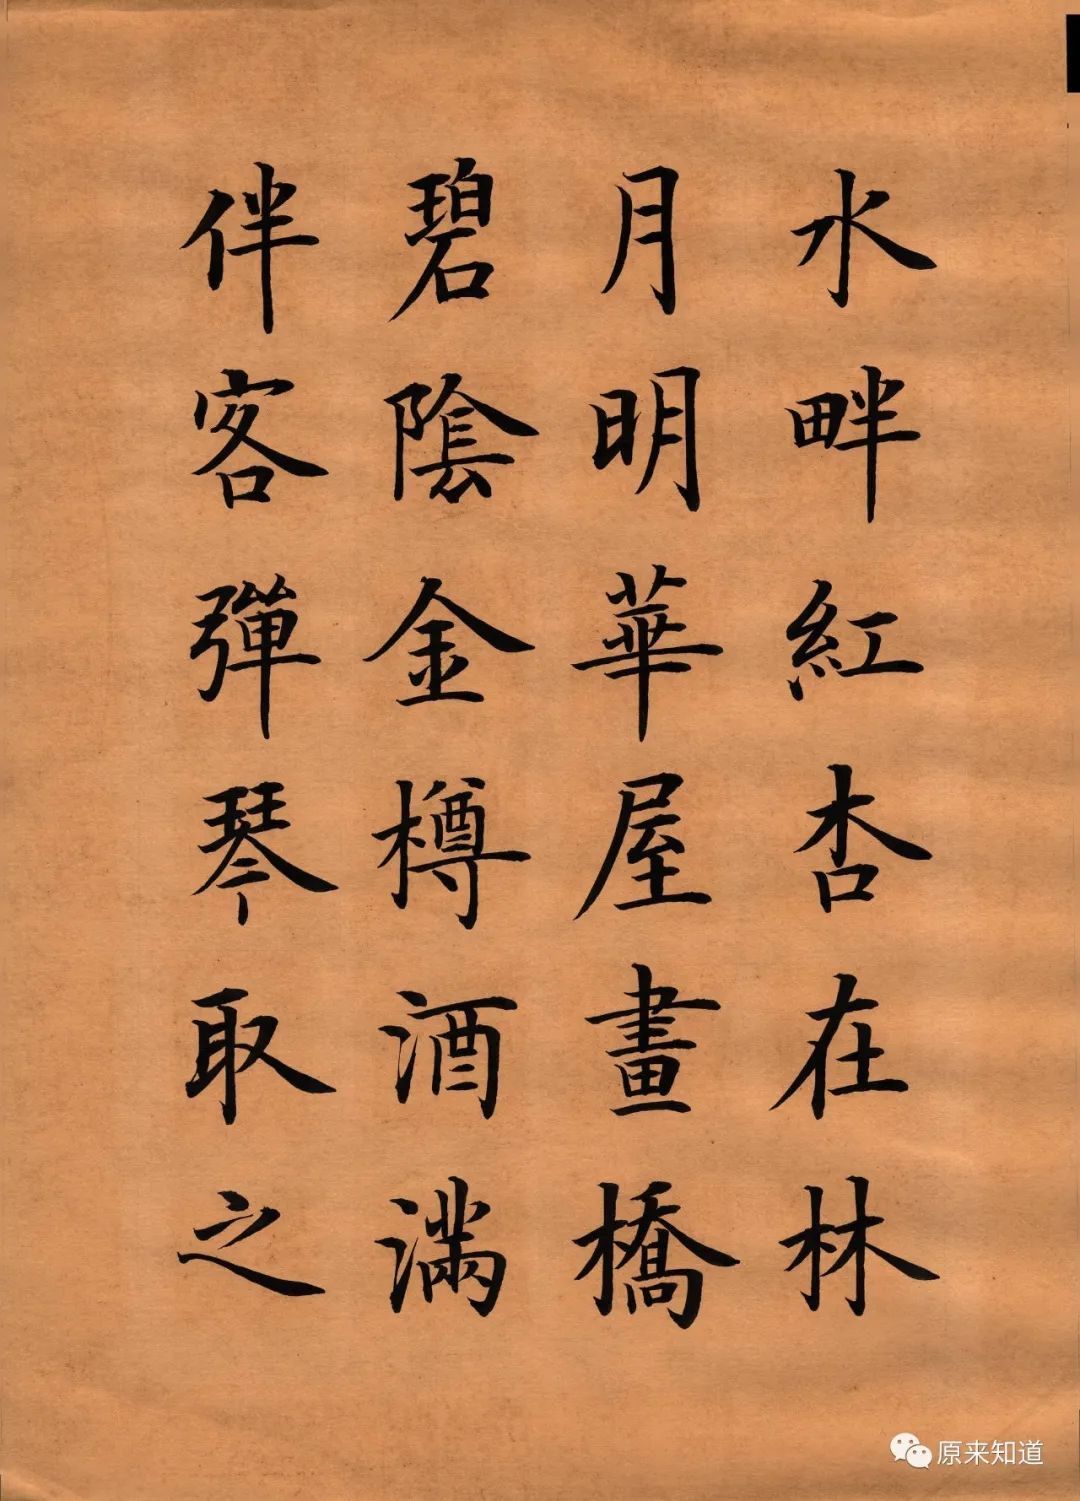 水畔紅杏在林
月明華屋畫橋
碧陰金樽酒滿
伴客彈琴取之
原来知道